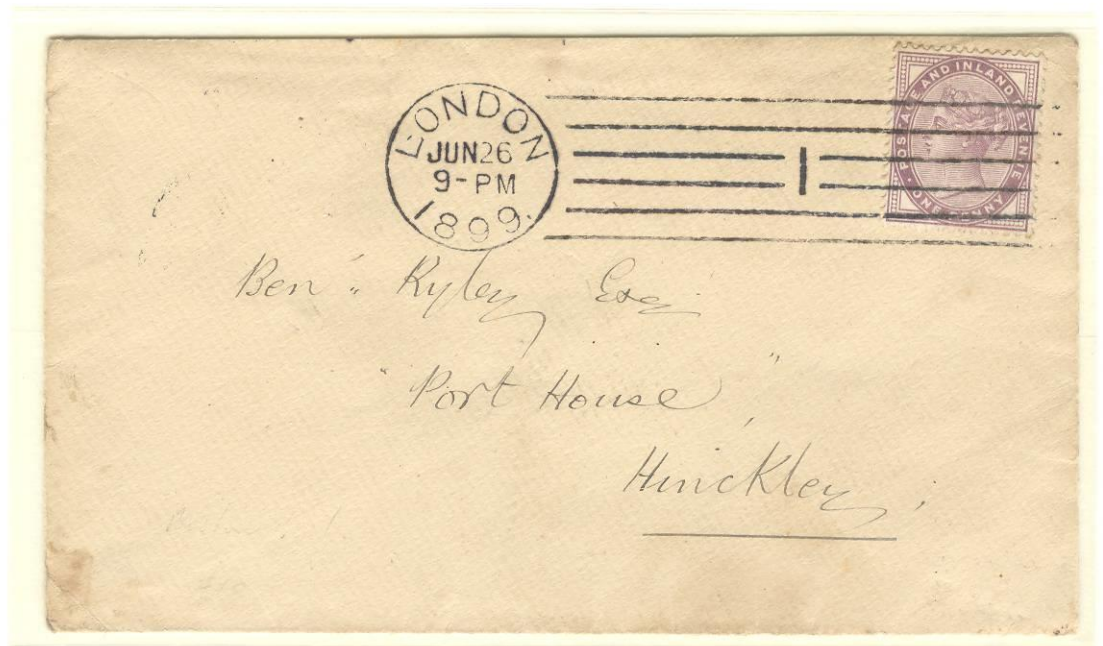 LONDON
JUN 26
9-PM
1899.
1
POSTAGE AND INLAND REVENUE
ONE PENNY
Ben'" Ryley Esq
"Port House",
Hinckley.